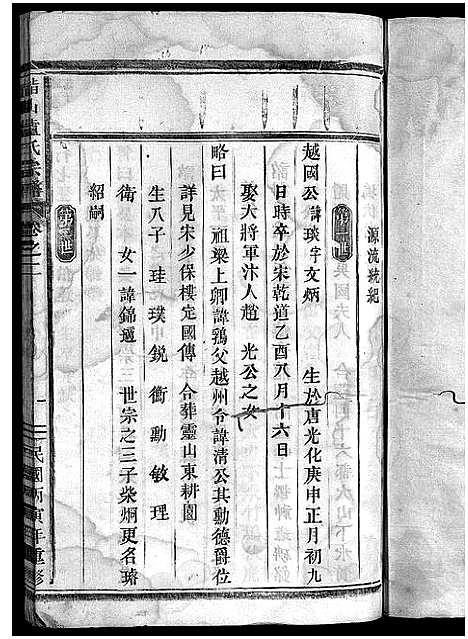 源流統紀
第一世
越國公諱琰字文炳 生於唐光化庚申正月初九
日時卒於宋乾道乙酉八月十六日
娶大將軍汴人趙 光公之女
略曰 祖梁上卿諱鴉父越州令諱清公其勳德爵位
詳見宋少保樓定國傳 今葬靈山東耕園
生八子 珪 璞 銳 衝 勳 敏 理
衛 女一諱錦適 三世宗之三子柴炯更名璿
紹嗣
第二世
山盧氏宗譜 卷之二
一
民國丙寅年重修